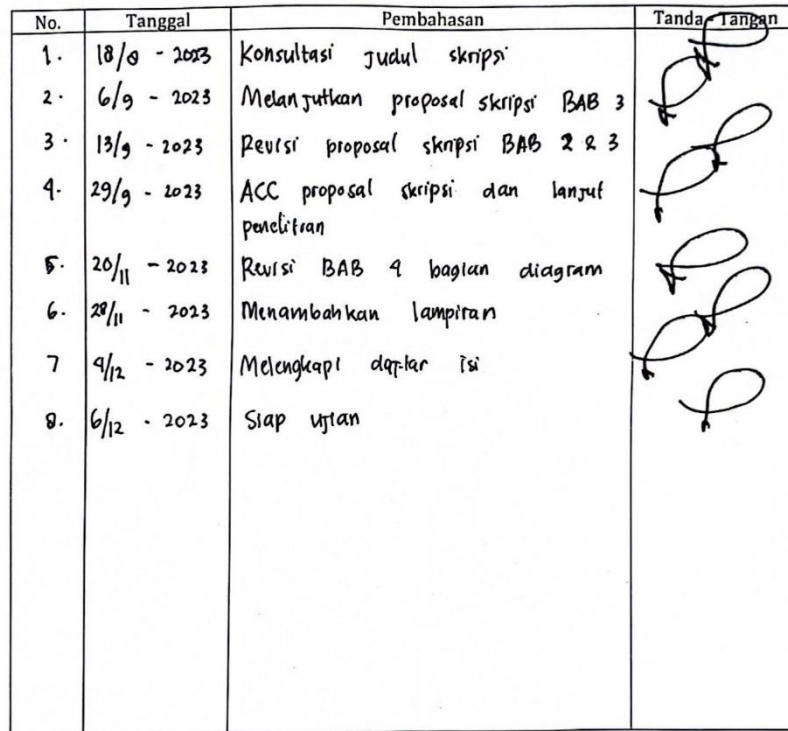 No. Tanggal Pembahasan Tanda Tangan
1. 18/8 - 2023 Konsultasi Judul skripsi
2. 6/9 - 2023 Melanjutkan proposal skripsi BAB 3
3. 13/9 - 2023 Revisi proposal skripsi BAB 2 & 3
4. 29/9 - 2023 ACC proposal skripsi dan lanjut
penelitian
5. 20/11 - 2023 Revisi BAB 4 bagian diagram
6. 28/11 - 2023 Menambahkan lampiran
7 4/12 - 2023 Melengkapi daftar isi
8. 6/12 - 2023 Siap ujian